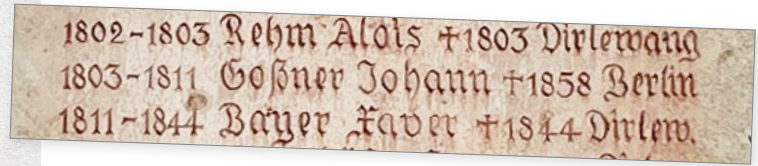 1802-1803 Rehm Alois †1803 Dirlewang
1803-1811 Goßner Johann †1858 Berlin
1811-1844 Bayer Xaver †1844 Dirlew.